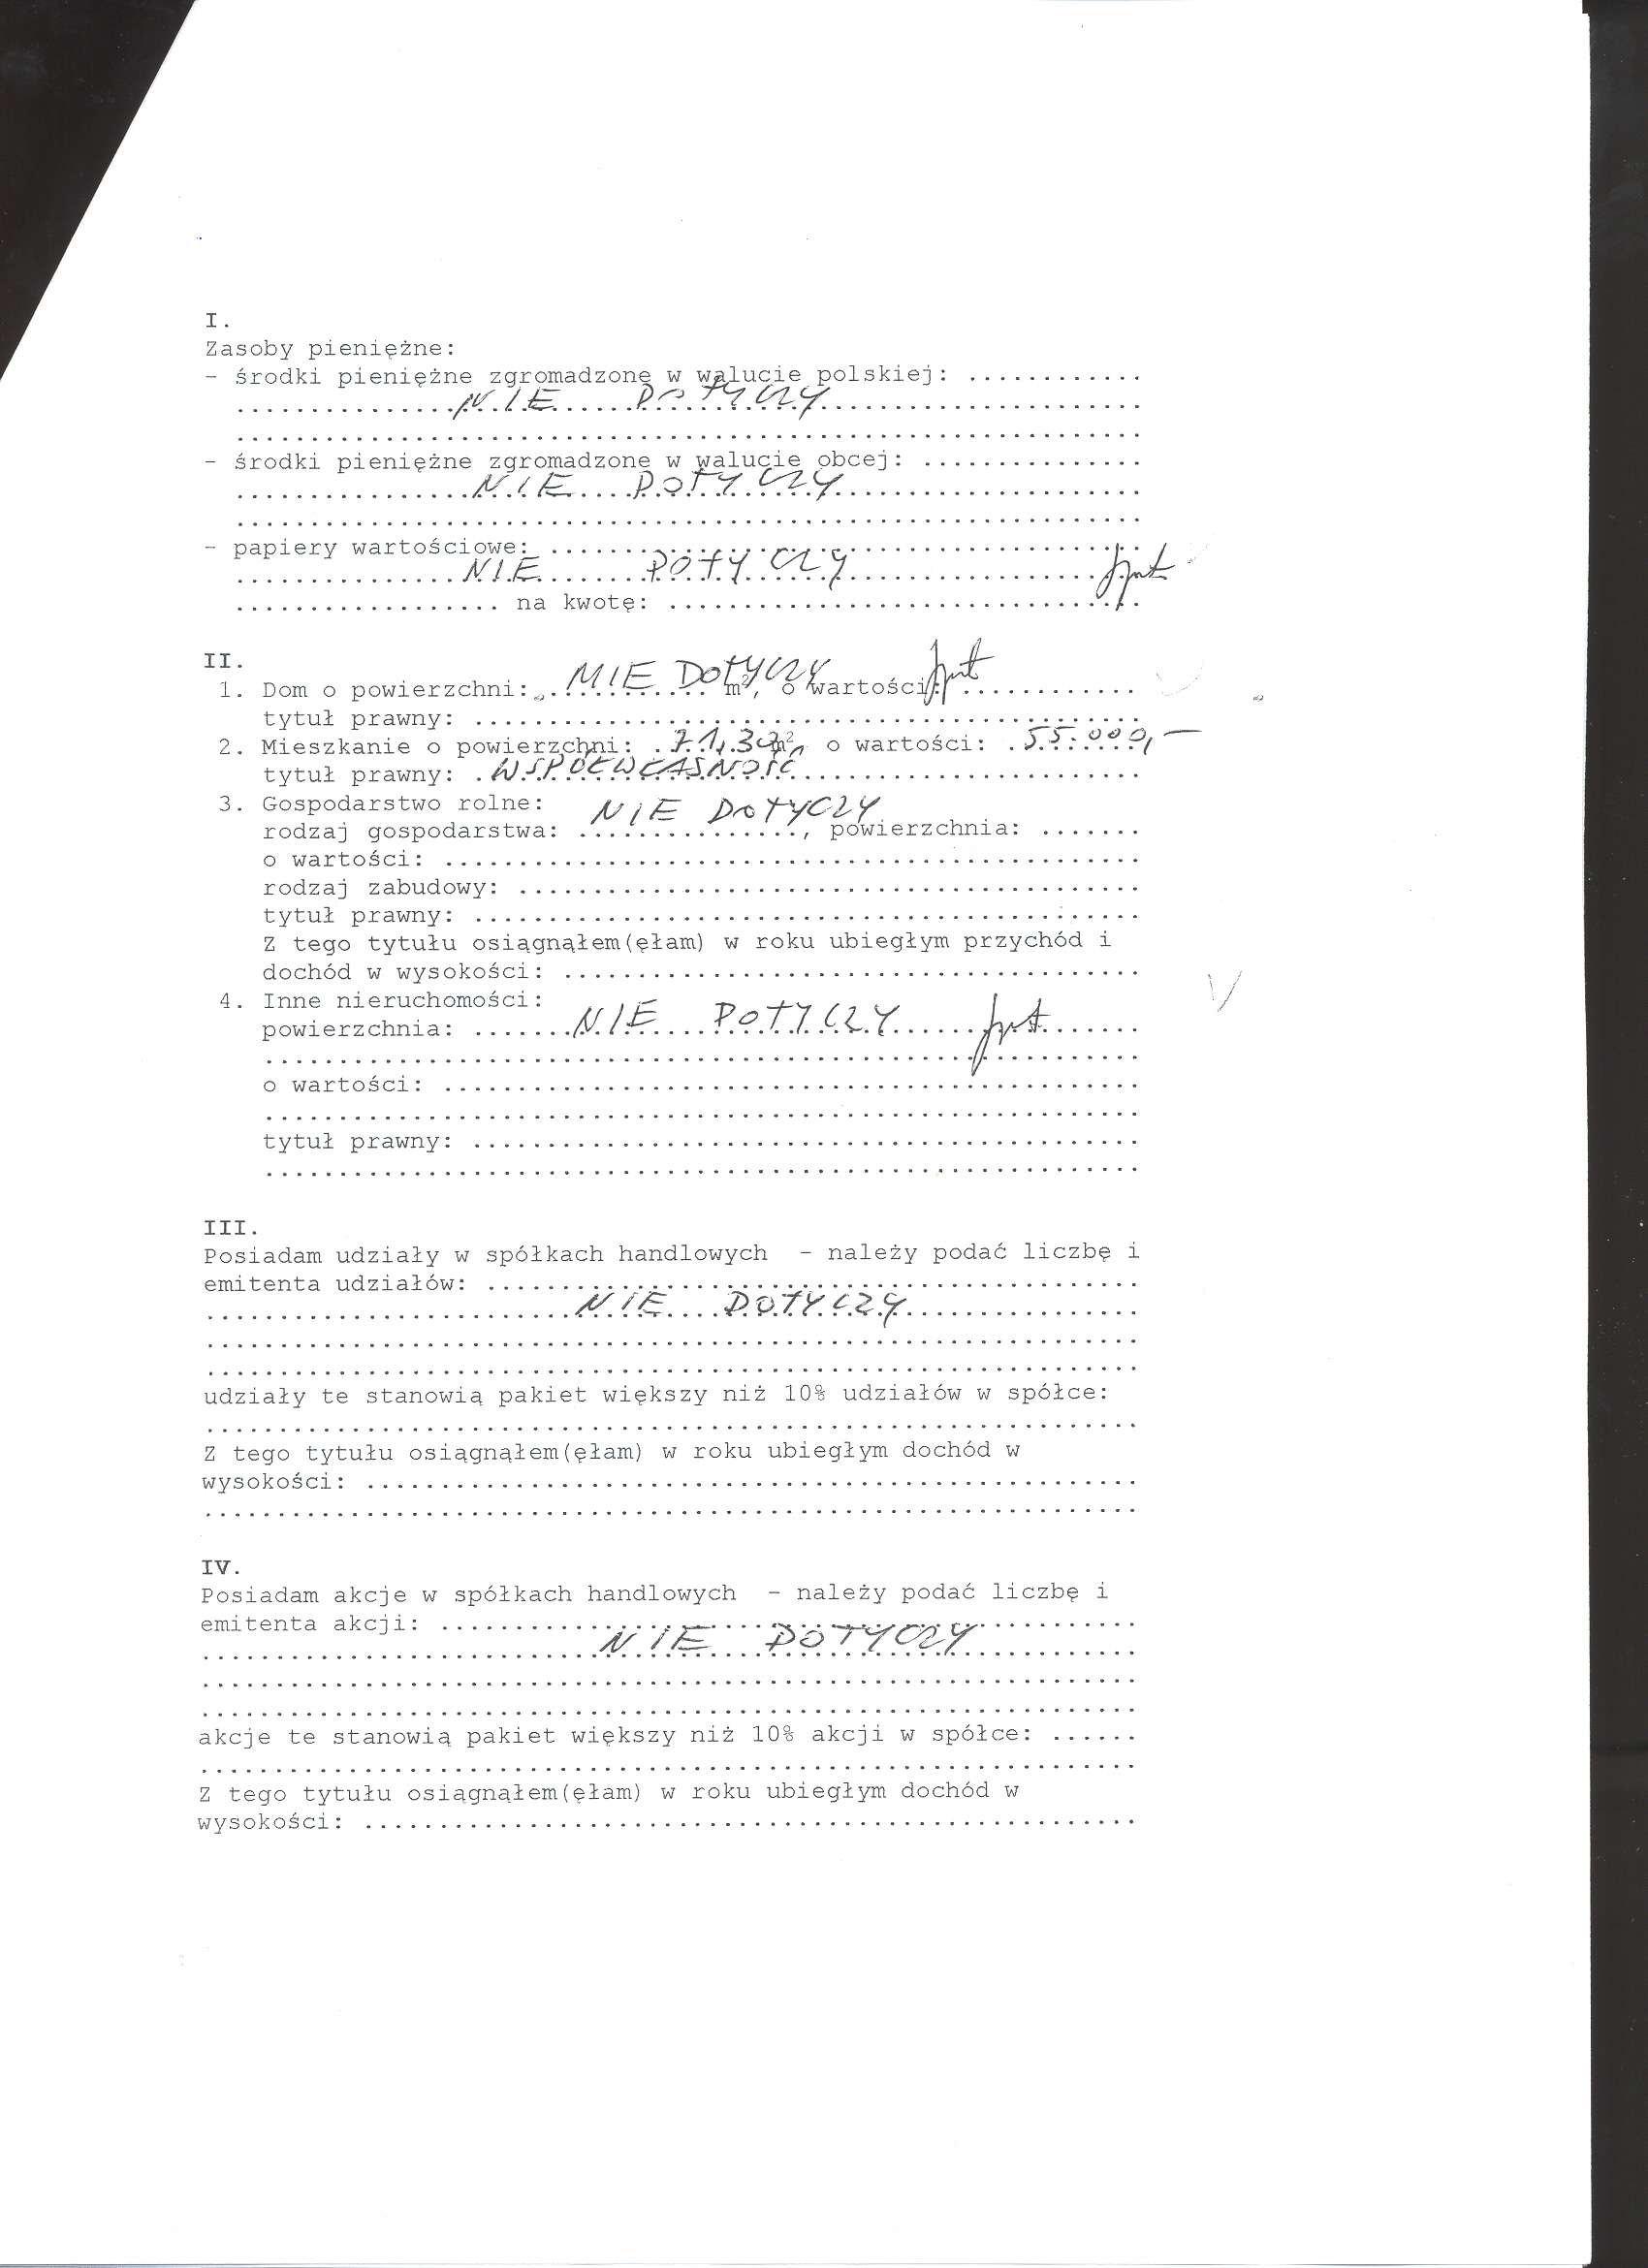 I.
Zasoby pieniężne:
- środki pieniężne zgromadzone w walucie polskiej: ............
NIE DOTYCZY
- środki pieniężne zgromadzone w walucie obcej: ...............
NIE DOTYCZY
- papiery wartościowe: ........................................
NIE DOTYCZY
.................. na kwotę: ................................
II.
1. Dom o powierzchni: NIE DOTYCZY m², o wartości: ............
tytuł prawny: .............................................
2. Mieszkanie o powierzchni: m², o wartości: 55.000,-
tytuł prawny: WSPÓŁWŁASNOŚĆ
3. Gospodarstwo rolne: NIE DOTYCZY
rodzaj gospodarstwa: ..............., powierzchnia: .......
o wartości: ...............................................
rodzaj zabudowy: ..........................................
tytuł prawny: .............................................
Z tego tytułu osiągnąłem(ęłam) w roku ubiegłym przychód i
dochód w wysokości: .......................................
4. Inne nieruchomości:
powierzchnia: NIE DOTYCZY
o wartości: ...............................................
tytuł prawny: .............................................
III.
Posiadam udziały w spółkach handlowych - należy podać liczbę i
emitenta udziałów: ............................................
NIE DOTYCZY
udziały te stanowią pakiet większy niż 10% udziałów w spółce:
Z tego tytułu osiągnąłem(ęłam) w roku ubiegłym dochód w
wysokości: ....................................................
IV.
Posiadam akcje w spółkach handlowych - należy podać liczbę i
emitenta akcji: ...............................................
NIE DOTYCZY
akcje te stanowią pakiet większy niż 10% akcji w spółce: ......
Z tego tytułu osiągnąłem(ęłam) w roku ubiegłym dochód w
wysokości: ....................................................